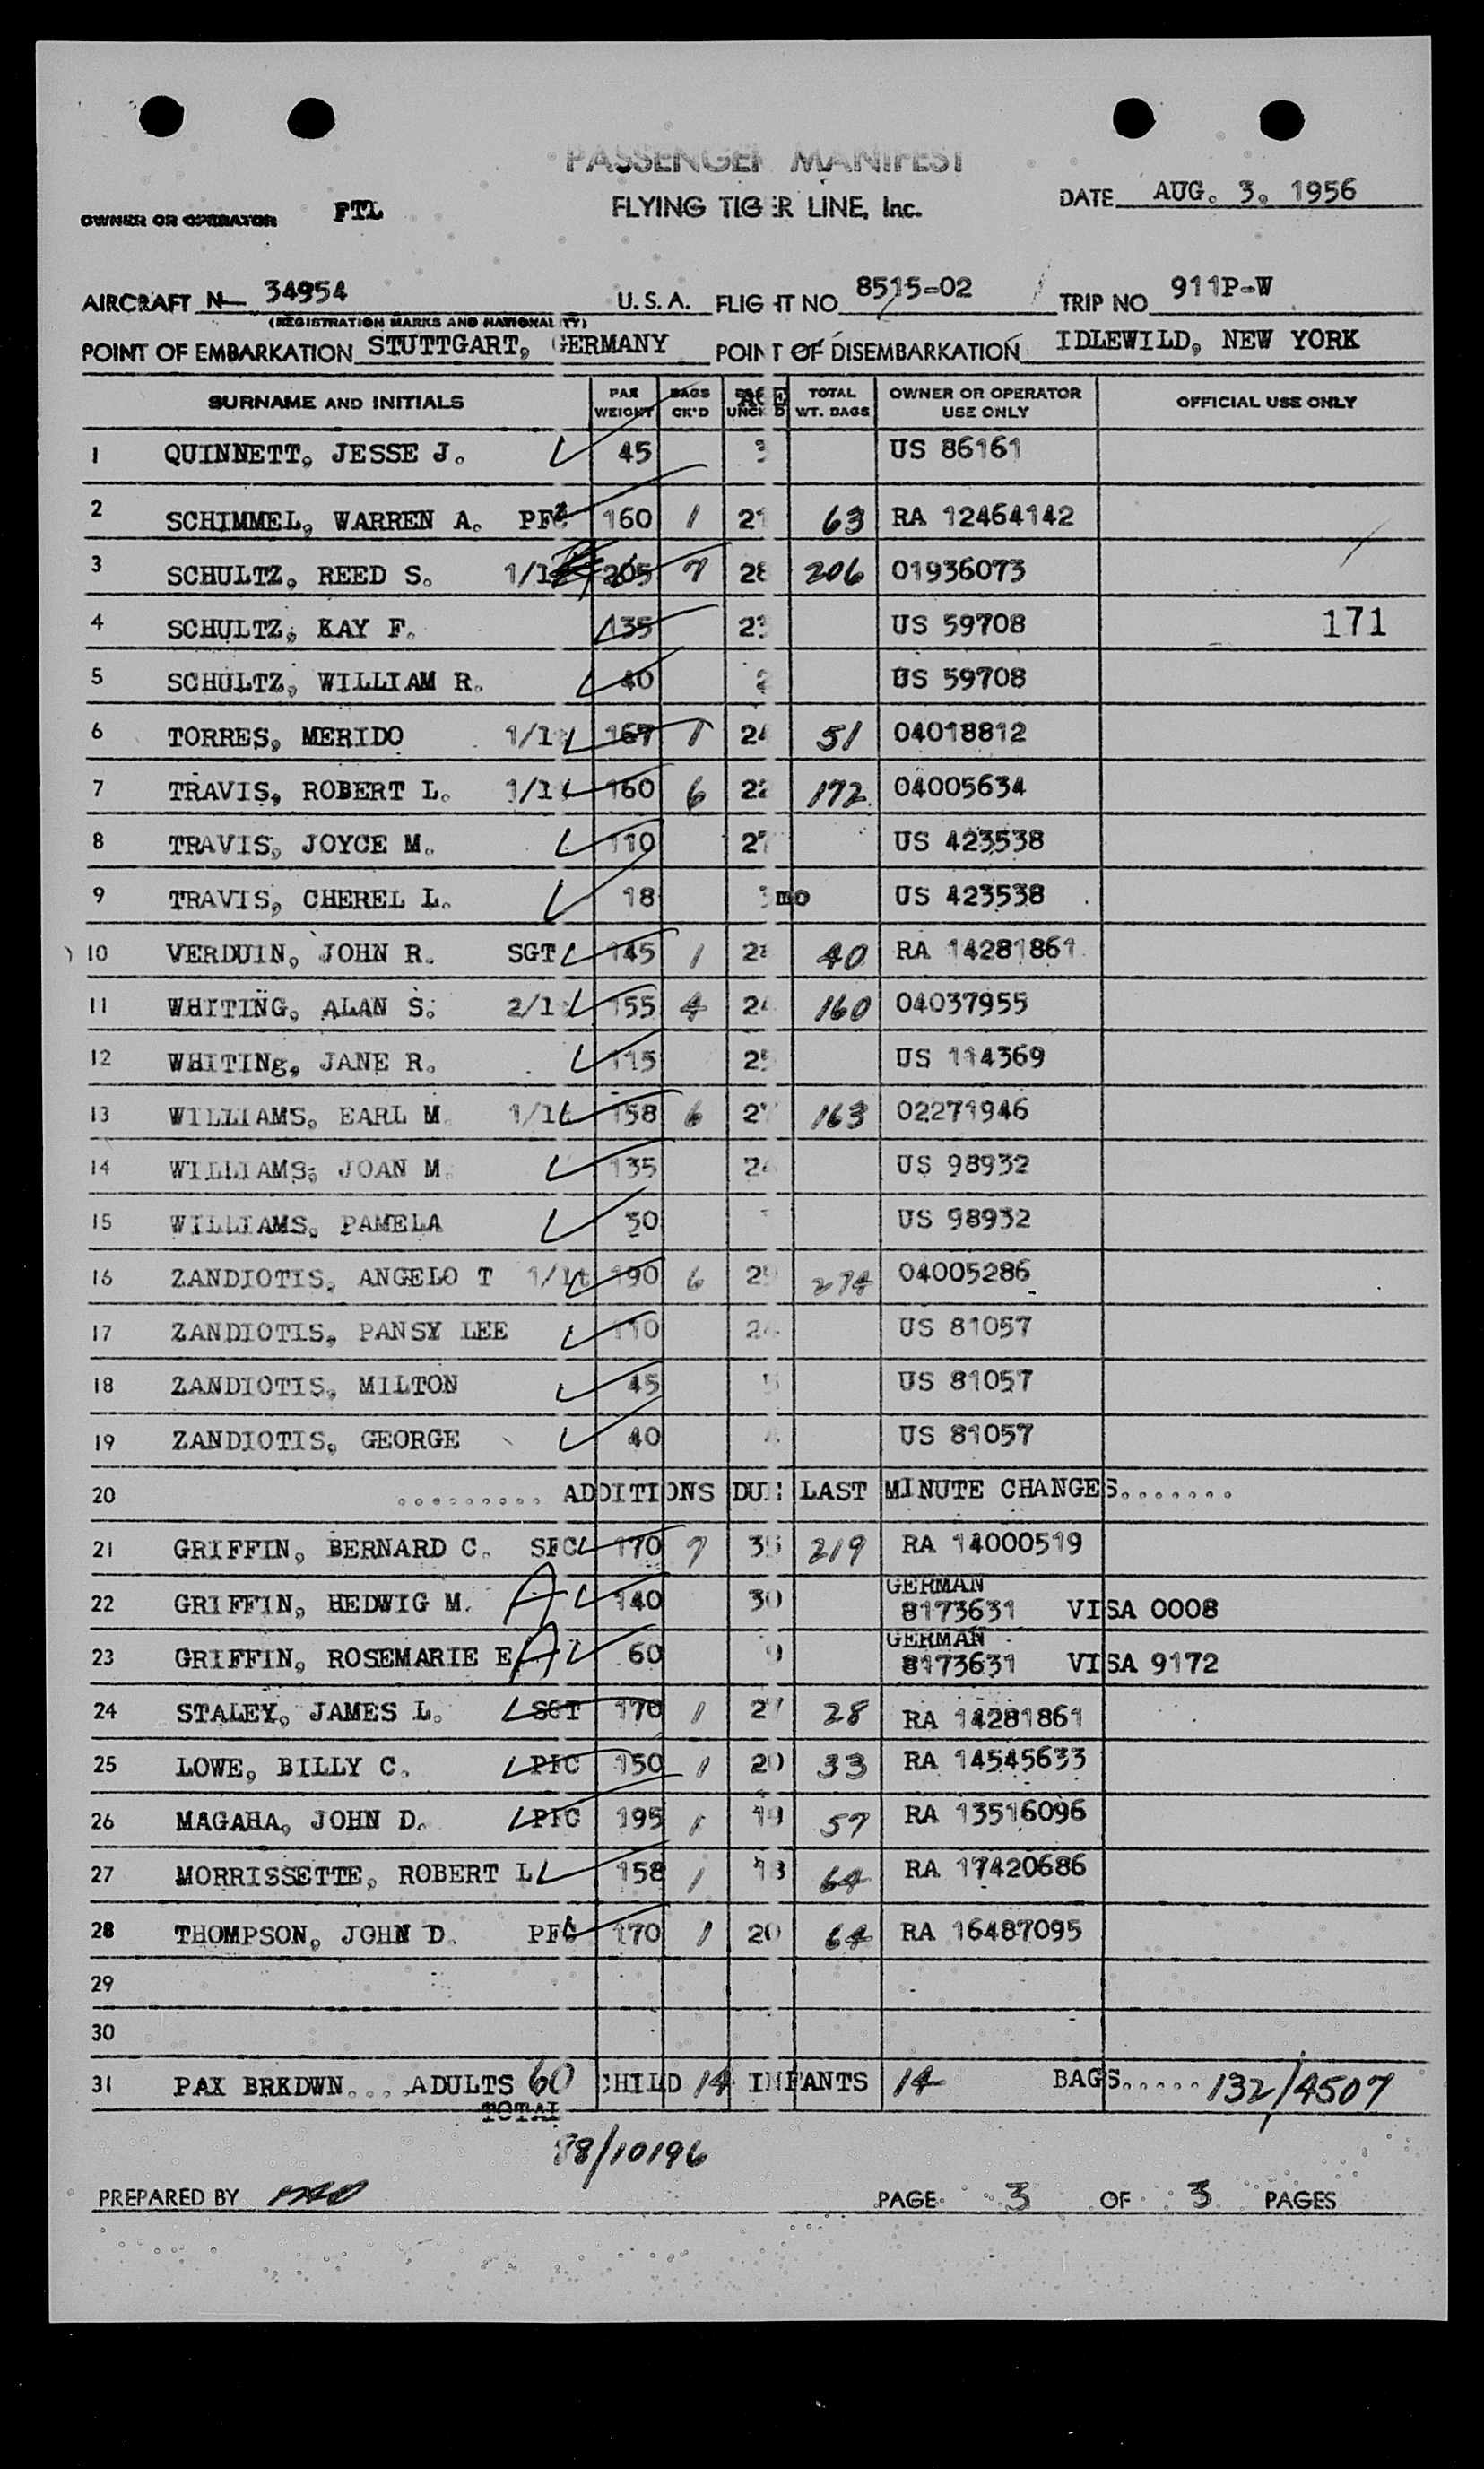 PASSENGER MANIFEST
OWNER OR OPERATOR FTL FLYING TIGER LINE, Inc. DATE AUG. 3, 1956
AIRCRAFT N 34954 U.S.A. FLIGHT NO 8515-02 TRIP NO 911P-W
(REGISTRATION MARKS AND NATIONALITY)
POINT OF EMBARKATION STUTTGART, GERMANY POINT OF DISEMBARKATION IDLEWILD, NEW YORK
SURNAME AND INITIALS PAX WEIGHT BAGS CK'D AGE TOTAL WT. BAGS OWNER OR OPERATOR USE ONLY OFFICIAL USE ONLY
1 QUINNETT, JESSE J. 45 3 US 86161
2 SCHIMMEL, WARREN A. PFC 160 1 21 63 RA 12464142
3 SCHULTZ, REED S. 205 7 28 206 01936073
4 SCHULTZ, KAY F. 135 23 US 59708 171
5 SCHULTZ, WILLIAM R. 40 2 US 59708
6 TORRES, MERIDO 1/lt 167 1 51 04018812
7 TRAVIS, ROBERT L. 1/lt 160 6 22 172 04005634
8 TRAVIS, JOYCE M. 110 US 423538
9 TRAVIS, CHEREL L. 18 3 mo US 423538
10 VERDUIN, JOHN R. SGT 145 1 40 RA 14281861
11 WHITING, ALAN S. 2/lt 155 4 160 04037955
12 WHITINg, JANE R. 115 25 US 114369
13 WILLIAMS, EARL M. 1/lt 158 6 27 163 02271946
14 WILLIAMS, JOAN M. 135 US 98932
15 WILLIAMS, PAMELA 30 US 98932
16 ZANDIOTIS, ANGELO T 1/lt 190 6 274 04005286
17 ZANDIOTIS, PANSY LEE 110 US 81057
18 ZANDIOTIS, MILTON 45 5 US 81057
19 ZANDIOTIS, GEORGE 40 US 81057
20 ......... ADDITIONS DUE LAST MINUTE CHANGES.......
21 GRIFFIN, BERNARD C. SFC 170 7 35 219 RA 14000519
22 GRIFFIN, HEDWIG M. A 140 30 GERMAN 8173631 VISA 0008
23 GRIFFIN, ROSEMARIE E A 60 9 GERMAN 8173631 VISA 9172
24 STALEY, JAMES L. SGT 170 1 27 28 RA 14281861
25 LOWE, BILLY C. PFC 150 1 20 33 RA 14545633
26 MAGAHA, JOHN D. PFC 195 1 19 57 RA 13516096
27 MORRISSETTE, ROBERT L 158 1 18 64 RA 17420686
28 THOMPSON, JOHN D. PFC 170 1 20 64 RA 16487095
29
30
31 PAX BRKDWN....ADULTS 60 CHILD 14 INFANTS 14 BAGS.....132/4507
TOTAL
88/10196
PREPARED BY PAGE 3 OF 3 PAGES